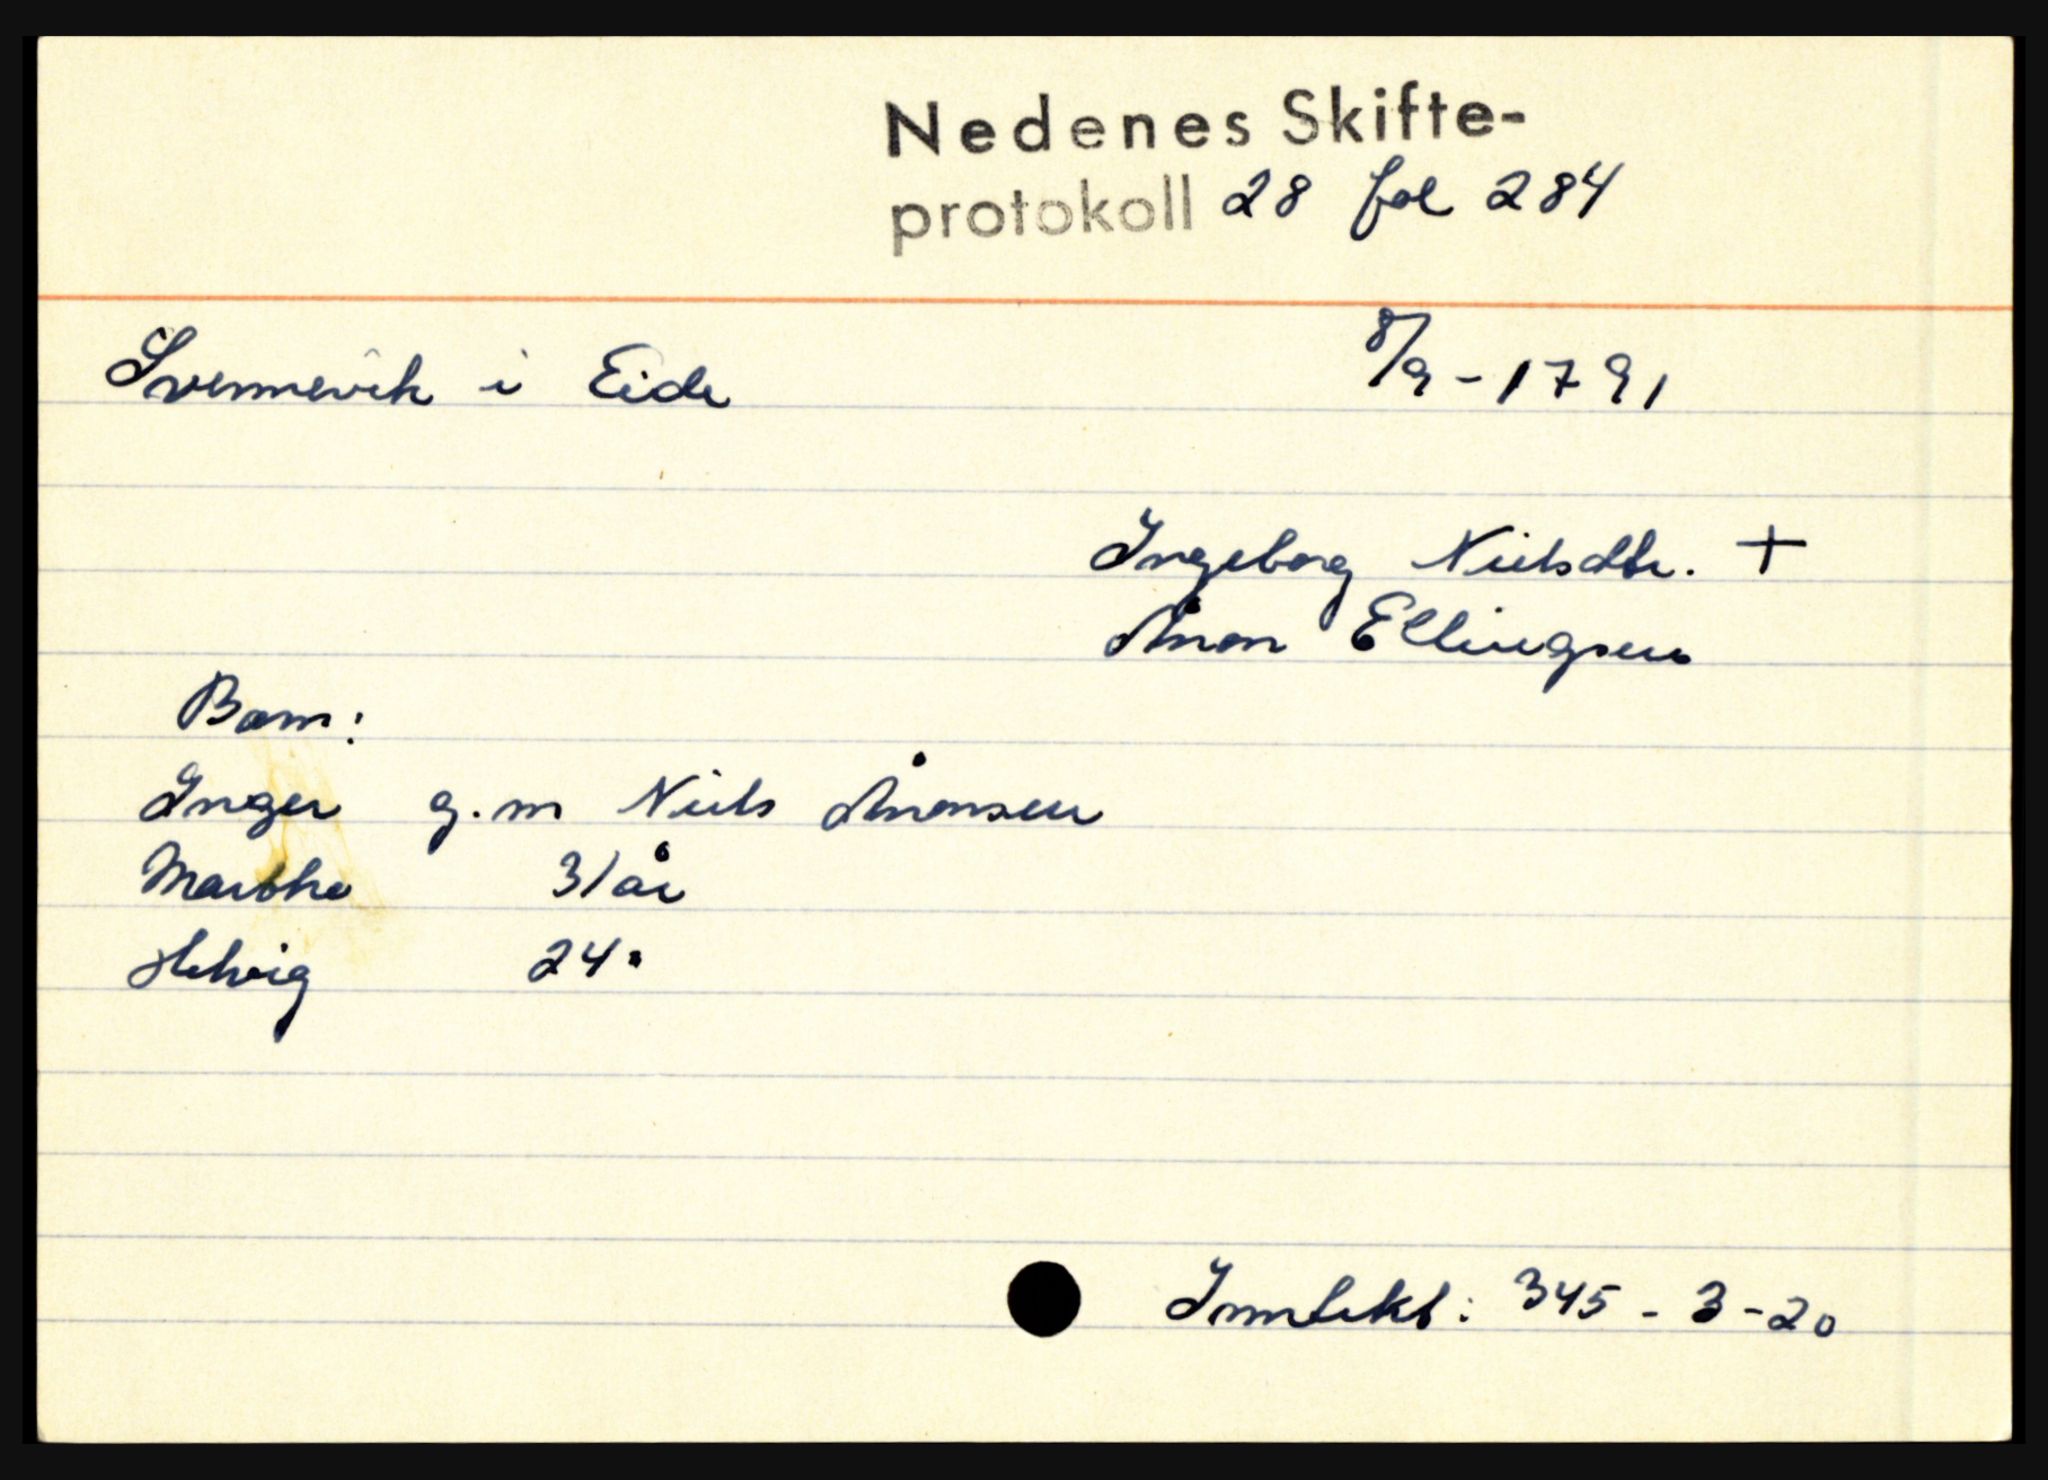 Nedenes Skifte-
protokoll 28 fol 284
Svennevik i Eide 8/9-1791
Ingeborg Nielsdtr. +
Ånon Ellingsen
Barn:
Inger g.m Niels Ånonsen
Marthe 31 år
Helvig 24"
Inntekt: 345-3-20